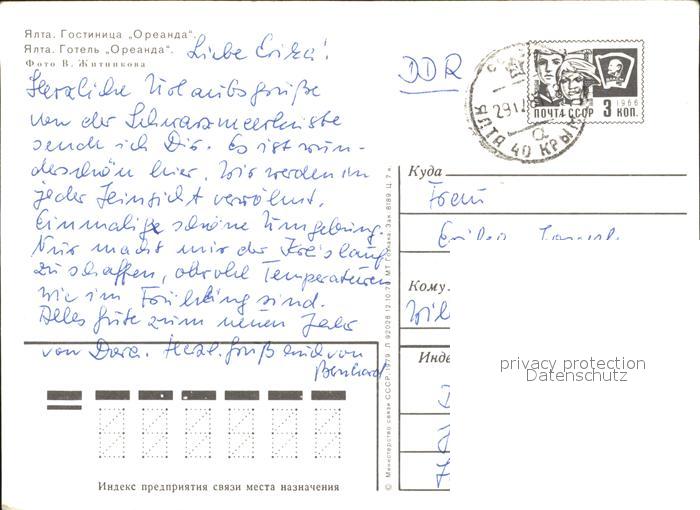 Ялта. Гостиница „Ореанда“.
Ялта. Готель „Ореанда“.
Фото В. Житникова
Liebe Erika!
Herzliche Urlaubsgrüße
von der Schwarzmeerküste
sende ich Dir. Es ist wun-
derschön hier. Wir werden in
jeder Hinsicht verwöhnt.
Einmalige schöne Umgebung.
Nur macht mir der Kreislauf
zu schaffen, obwohl Temperaturen
wie im Frühling sind.
Alles Gute zum neuen Jahr
von Dora. Herzl. Gruß auch von
Bernhard
Индекс предприятия связи места назначения
© Министерство связи СССР, 1979. Л 92028 12.10.79. МТ Гознака. Зак. 8189. Ц. 7 к.
DDR
ЯЛТА 40 КРЫМ
2911
1966
ПОЧТА СССР 3 КОП.
Куда
Frau
Erika
Кому
Wil
Инде
privacy protection
Datenschutz